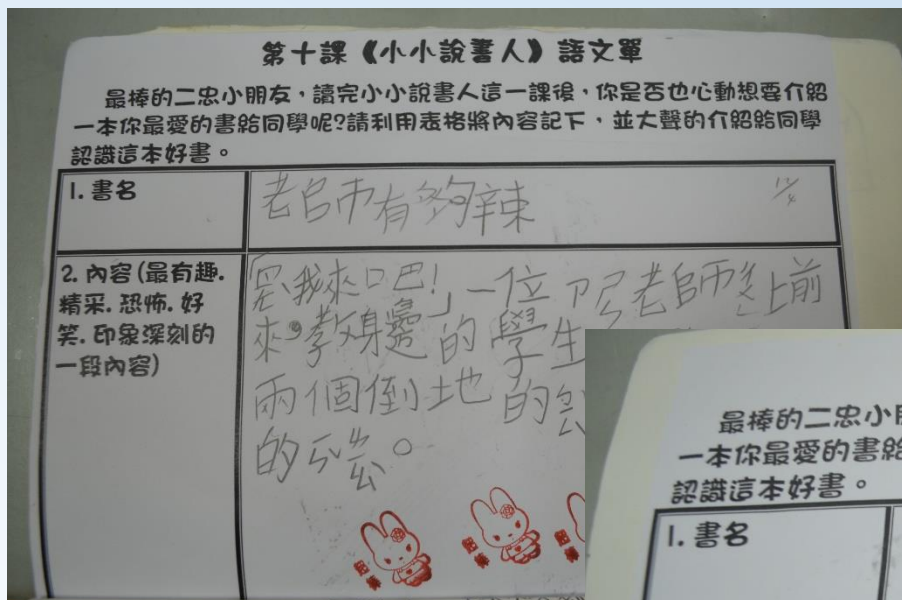 第十課《小小說書人》語文單
最棒的二忠小朋友，讀完小小說書人這一課後，你是否也心動想要介紹
一本你最愛的書給同學呢?請利用表格將內容記下，並大聲的介紹給同學
認識這本好書。
1. 書名
老師有夠辣
12/4
2. 內容(最有趣.
精采.恐怖.好
笑.印象深刻的
一段內容)
我來吧!」一位ㄗㄞ老師上前
來,教身邊的學生
兩個倒地的
的
最棒的二忠小
一本你最愛的書給
認識這本好書。
1. 書名